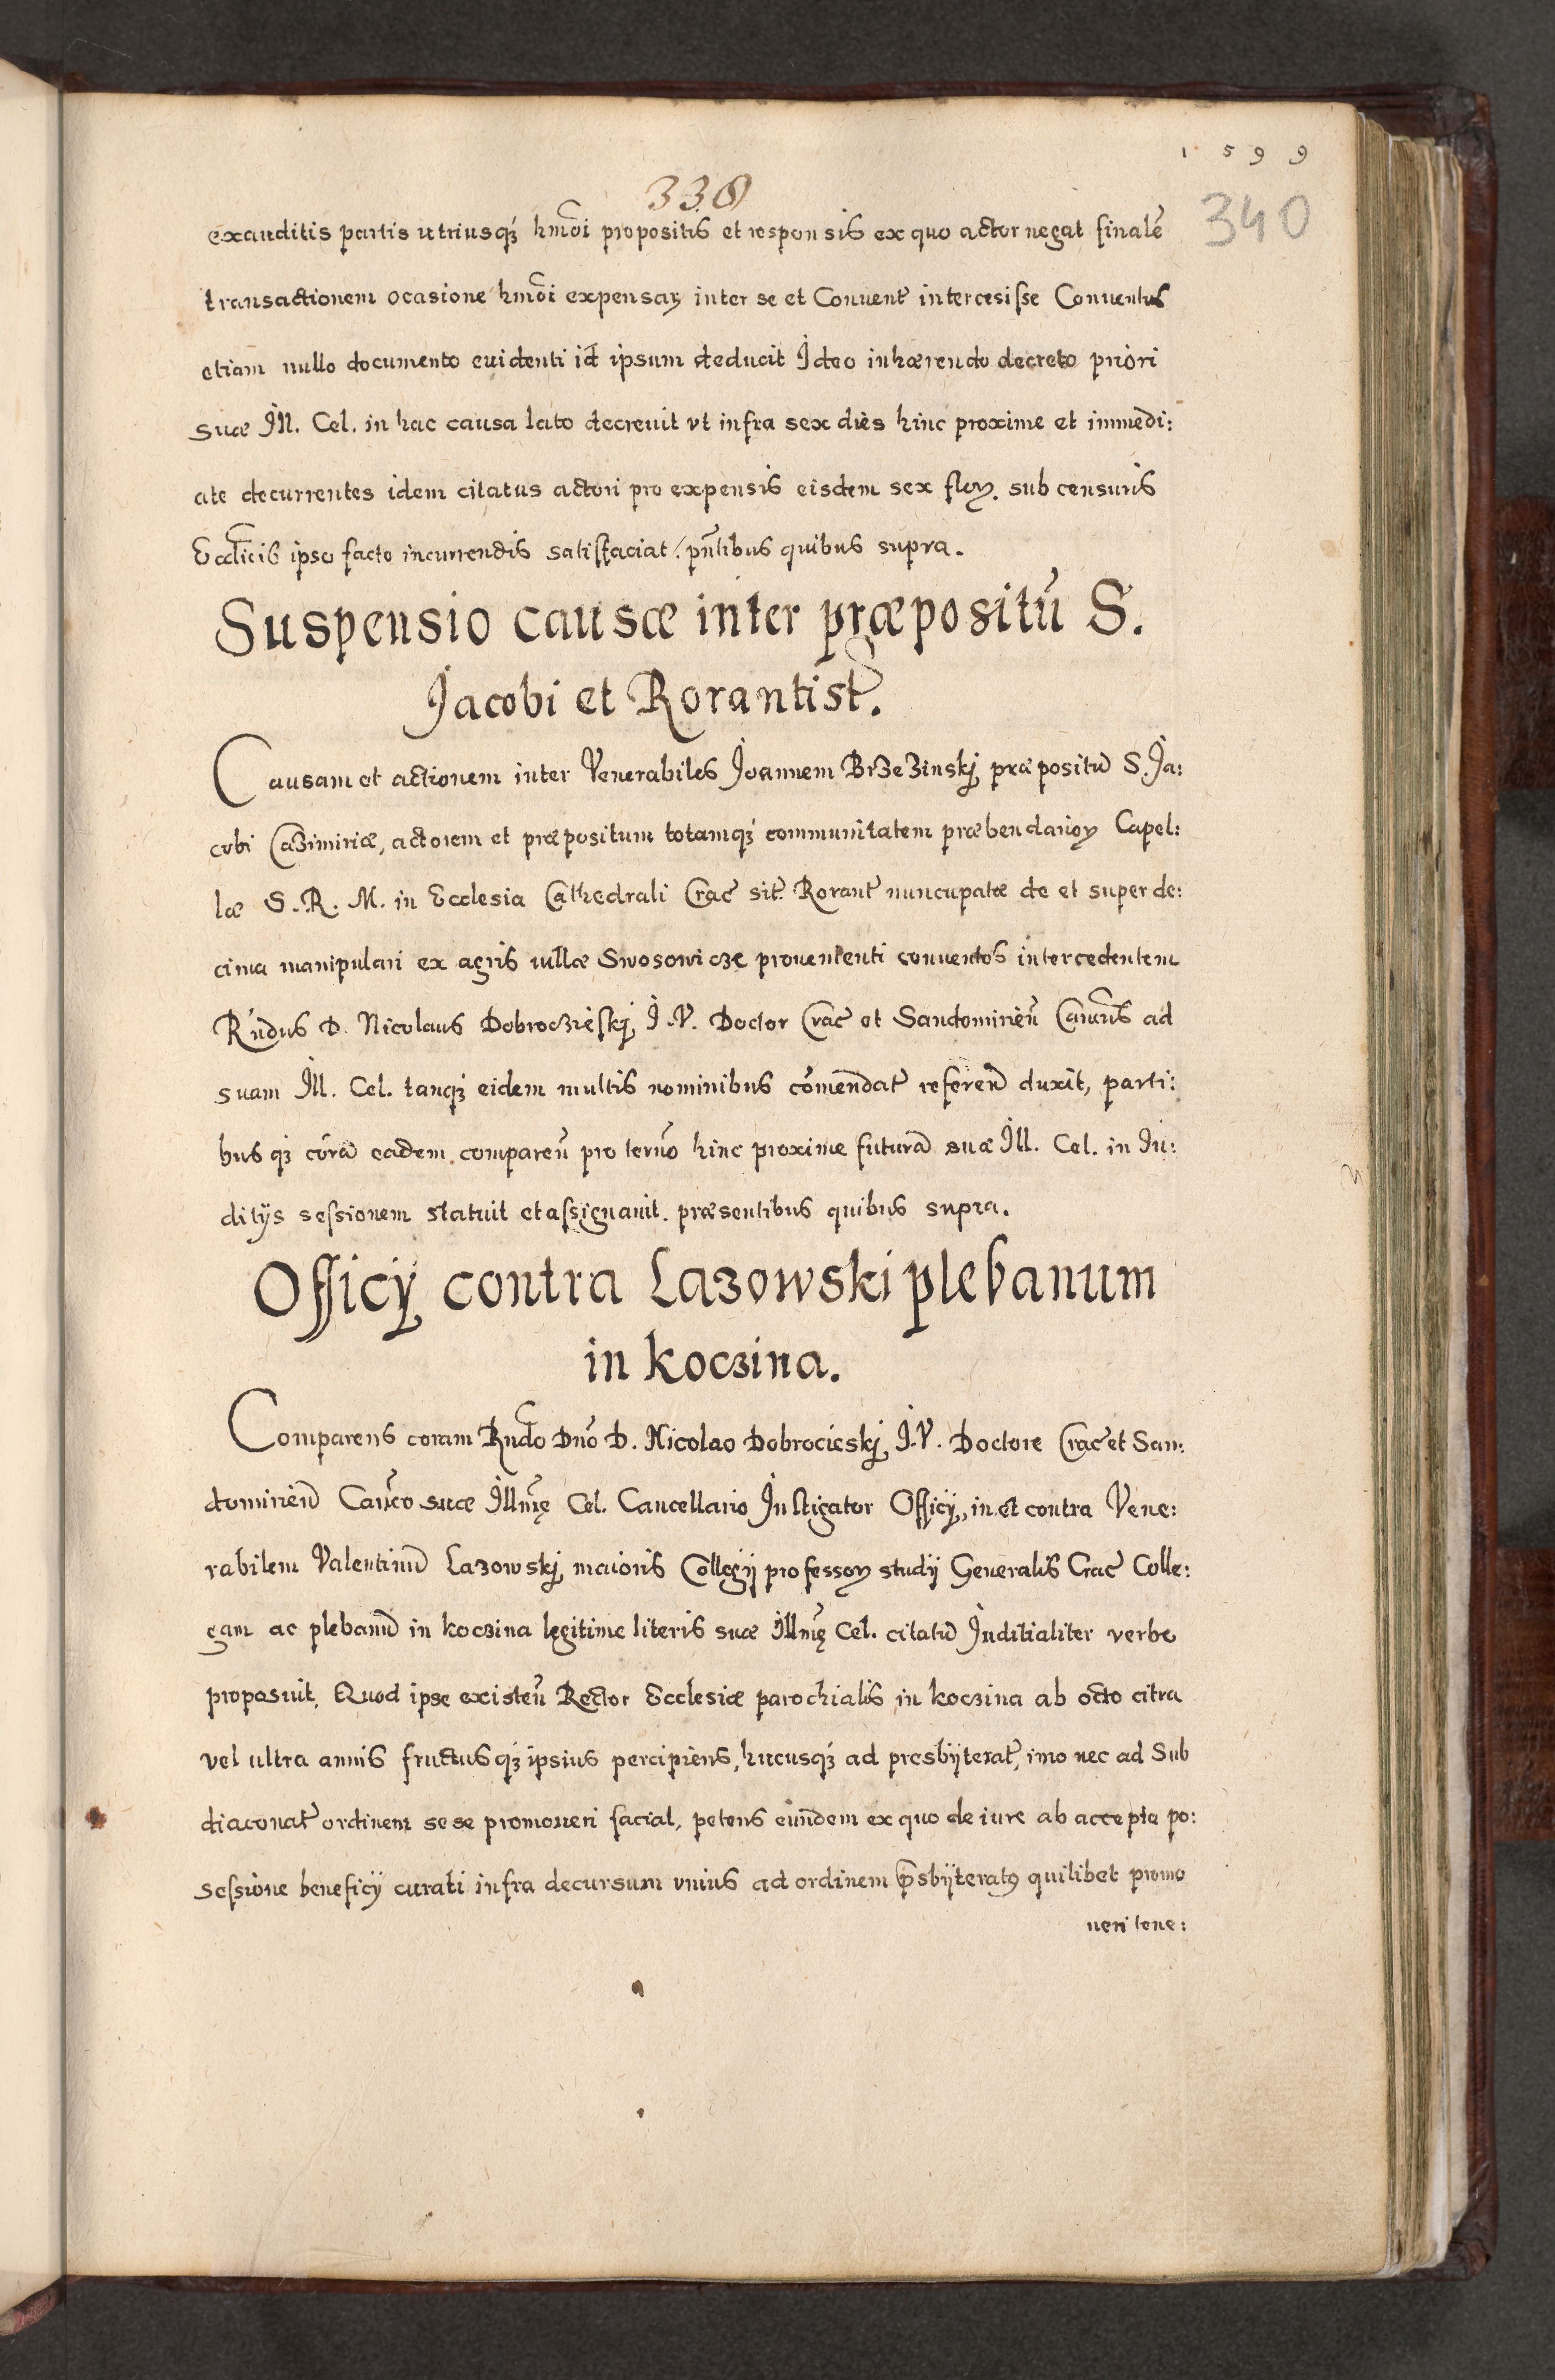 1599
338
340
exauditis partis utriusqꝫ hmõi propositis et responsis ex quo actor negat finalẽ
transactionem ocasione hmõi expensaꝝ inter se et Conuent̃ intercesisse Conuentus
etiam nullo documento euidenti id ipsum deducit Ideo inhærendo decreto priori
suæ Ill. Cel. in hac causa lato decreuit vt infra sex dies hinc proxime et immedi:
ate decurrentes idem citatus actori pro expensis eisdem sex floꝝ. sub censuris
Ecclicis ipso facto incurrendis satisfaciat. pñtibus quibus supra.
Suspensio causæ inter præpositũ S.
Jacobi et Rorantist̃.
Causam et actionem inter Venerabiles Joannem Brzezinskj præpositũ S. Ja:
cobi Cazimiriæ, actorem et præpositum totamqꝫ communitatem præbendarioꝝ Capel:
læ S. R. M. in Ecclesia Cathedrali Crac̃ sit̃. Rorant̃ nuncupatæ de et super de:
cima manipulari ex agris uillæ Swosowicze prouenienti conuentos intercedentem
Rñdus D. Nicolaus Dobroczieskj J. V. Doctor Crac̃ et Sandomirieñ Canũs ad
suam Ill. Cel. tanqꝫ eidem multis nominibus cõmendat̃ refereñ duxit, parti:
bus qꝫ corã eadem compareñ pro termõ hinc proxime futurã suæ Ill. Cel. in Iu:
ditijs sessionem statuit et assignauit. præsentibus quibus supra.
Officij contra Lazowski plebanum
in koczina.
Comparens coram Rndo Dnõ D. Nicolao Dobrocieskj J. V. Doctore Crac̃ et San:
domirieñ Canco suæ Illmę Cel. Cancellario Instigator Officij, in et contra Vene:
rabilem Valentinũ Lazowskj maioris Collegij professoꝝ studij Generalis Crac̃ Colle:
gam ac plebanũ in koczina legitime literis suæ Illmę Cel. citatũ Iuditialiter verbo
proposuit. Quod ipse existeñ Rector Ecclesiæ parochialis in koczina ab octo citra
vel ultra annis fructusqꝫ ipsius percipiens, hucusqꝫ ad presbijterat̃, imo nec ad Sub
diaconat̃ ordinem sese promoueri faciat, petens eundem ex quo de iure ab accepta po:
sessione beneficij curati infra decursum vnius ad ordinem p̃sbijteratꝰ quilibet promo
ueri tene: